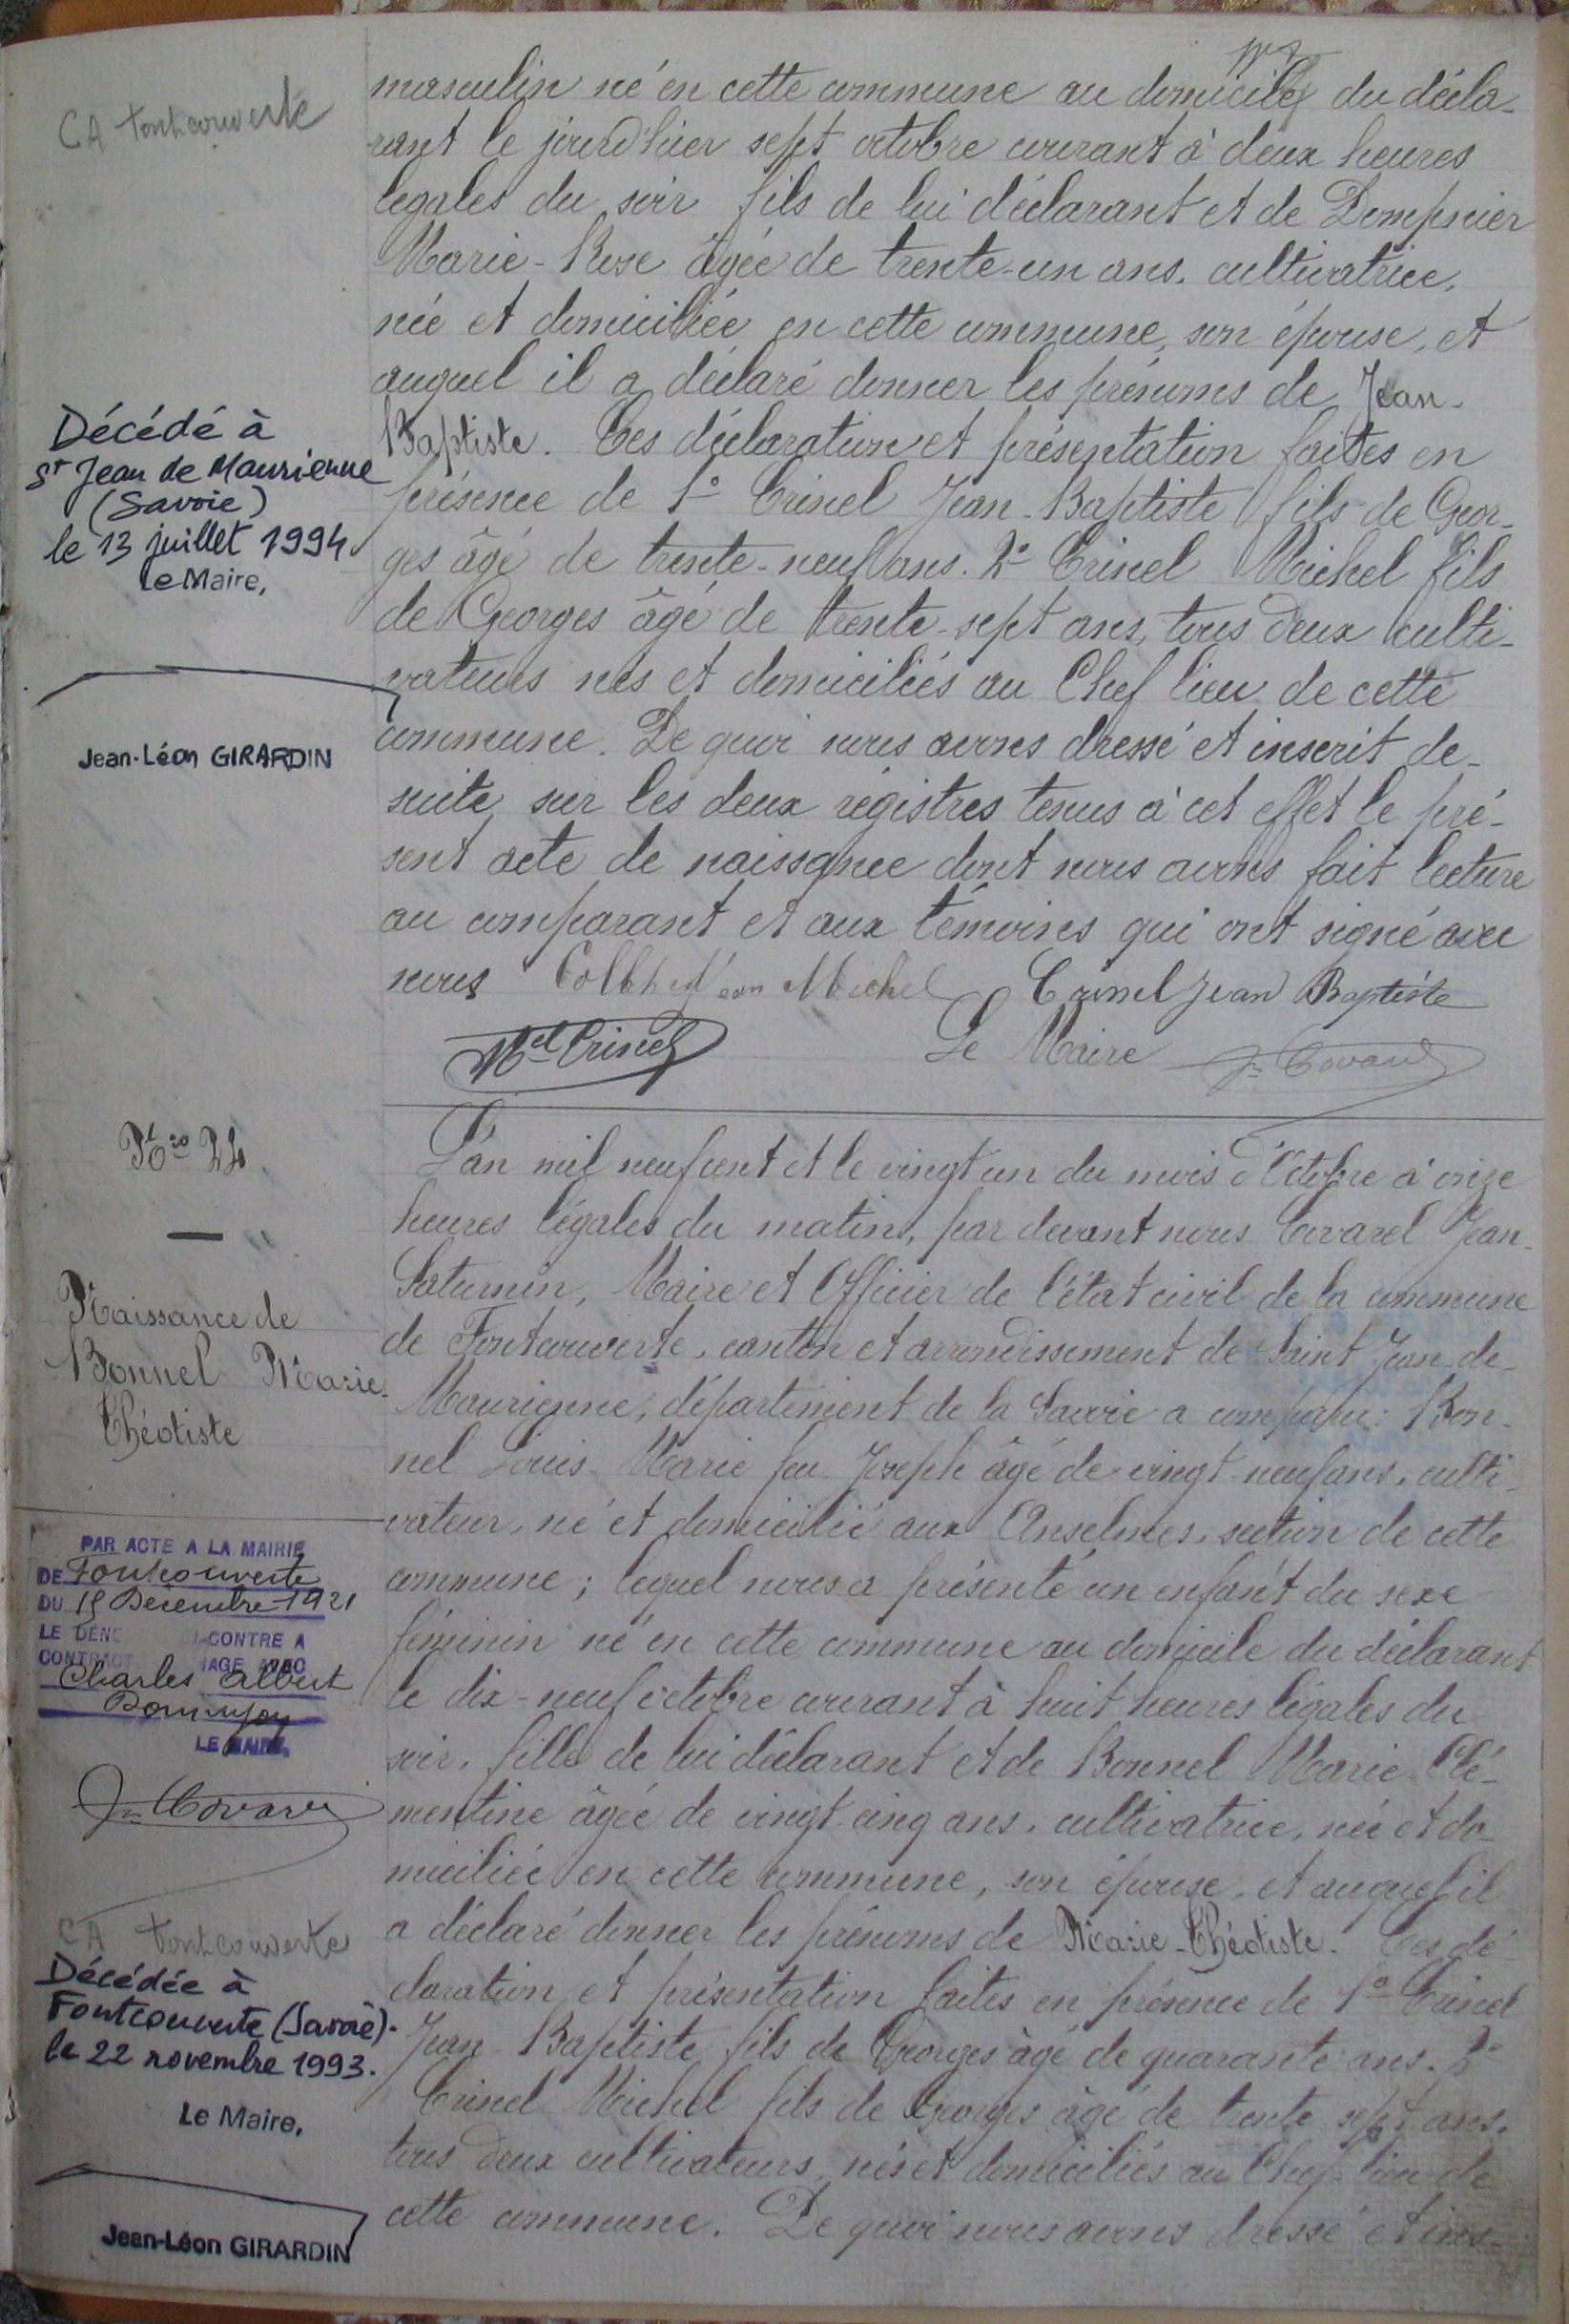 CA Fontcouverte
masculin né en cette commune au domicile du décla-
rant le jourd'hier sept octobre courant à deux heures
légales du soir fils de lui déclarant et de Dompnier
Marie-Rose âgée de trente-un ans. cultivatrice,
née et domiciliée en cette commune, son épouse, et
auquel il a déclaré donner les prénoms de Jean-
Baptiste. Ces déclaration et présentation faites en
présence de 1° Crinel Jean-Baptiste fils de Geor-
ges âgé de trente-neuf ans. 2° Crinel Michel fils
de Georges âgé de trente-sept ans, tous deux culti-
vateurs nés et domiciliés au Chef lieu de cette
commune. De quoi nous avons dressé et inscrit de-
suite sur les deux régistres tenus à cet effet le pré-
sent acte de naissance dont nous avons fait lecture
au comparant et aux témoins qui ont signé avec
nous Jean Michel Crinel Jean Baptiste
Mel Crinel Le Maire Jn Covarel
Décédé à
St Jean de Maurienne
(Savoie)
le 13 juillet 1994
Le Maire,
Jean-Léon GIRARDIN
Nro 24
Naissance de
Bonnel Marie-
Théotiste
L'an mil neuf cent et le vingt un du mois d'Octobre à onze
heures légales du matin, par devant nous Covarel Jean-
Saturnin, Maire et Officier de l'état civil de la commune
de Fontcouverte, canton et arrondissement de Saint Jean-de-
Maurienne, département de la Savoie a comparu: Bon-
nel Louis-Marie feu Joseph âgé de vingt-neuf ans, culti-
vateur, né et domicilié aux Anselmes, section de cette
commune; lequel nous a présenté un enfant du sexe
féminin né en cette commune au domicile du déclarant
le dix-neuf octobre courant à huit heures légales du
soir, fille de lui déclarant et de Bonnel Marie-Clé-
mentine âgée de vingt-cinq ans, cultivatrice, née et do-
miciliée en cette commune, son épouse, et auquel il
a déclaré donner les prénoms de Marie-Théotiste. Ces dé-
claration et présentation faites en présence de 1° Crinel
Jean-Baptiste fils de Georges âgé de quarante ans. 2°
Crinel Michel fils de Georges âgé de trente sept ans.
tous deux cultivateurs, nés et domiciliés au Chef-lieu de
cette commune. De quoi nous avons dressé et ins-
PAR ACTE A LA MAIRIE
DE Fontcouverte
DU 15 Décembre 1921
LE DÉN CONTRE A
CONTRACT IAGE AVEC
Charles Albert
LE MAIRE
Jn Covarel
CA Fontcouverte
Décédée à
Fontcouverte (Savoie).
le 22 novembre 1993.
Le Maire,
Jean-Léon GIRARDIN